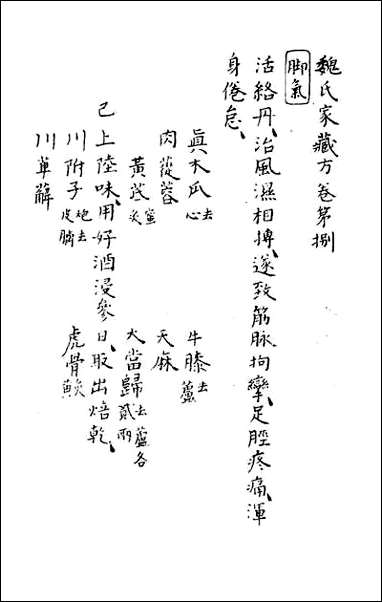 魏氏家藏方卷第捌
脚氣
活絡丹、治風濕相搏、遂致筋脉拘攣、足脛疼痛、渾
身倦怠、
真木瓜去心 牛膝去蘆
肉蓯蓉 天麻
黃芪蜜炙 大當歸去蘆各貳兩
已上陸味、用好酒浸參日、取出焙乾、
川附子炮去皮臍 虎骨
川萆薢